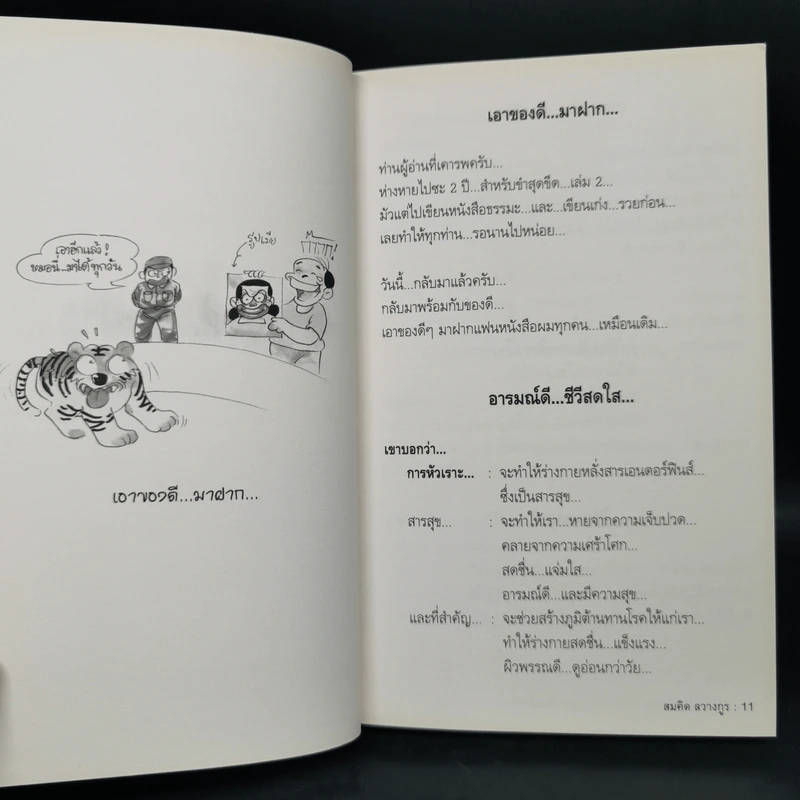 เอาอีกแล้ว!
หมอนี่...มาได้ทุกวัน
รูปเมีย
กากาก!
เอาของดี...มาฝาก...
เอาของดี...มาฝาก...
ท่านผู้อ่านที่เคารพครับ...
ห่างหายไปซะ 2 ปี...สำหรับขำสุดขีด...เล่ม 2...
มัวแต่ไปเขียนหนังสือธรรมะ...และ...เขียนเก่ง...รวยก่อน...
เลยทำให้ทุกท่าน...รอนานไปหน่อย...
วันนี้...กลับมาแล้วครับ...
กลับมาพร้อมกับของดี...
เอาของดีๆ มาฝากแฟนหนังสือผมทุกคน...เหมือนเดิม...
อารมณ์ดี...ชีวีสดใส...
เขาบอกว่า...
การหัวเราะ... : จะทำให้ร่างกายหลั่งสารเอนดอร์ฟินส์...
ซึ่งเป็นสารสุข...
สารสุข... : จะทำให้เรา...หายจากความเจ็บปวด...
คลายจากความเศร้าโศก...
สดชื่น...แจ่มใส...
อารมณ์ดี...และมีความสุข...
และที่สำคัญ... : จะช่วยสร้างภูมิต้านทานโรคให้แก่เรา...
ทำให้ร่างกายสดชื่น...แข็งแรง...
ผิวพรรณดี...ดูอ่อนกว่าวัย...
สมคิด ลวางกูร : 11